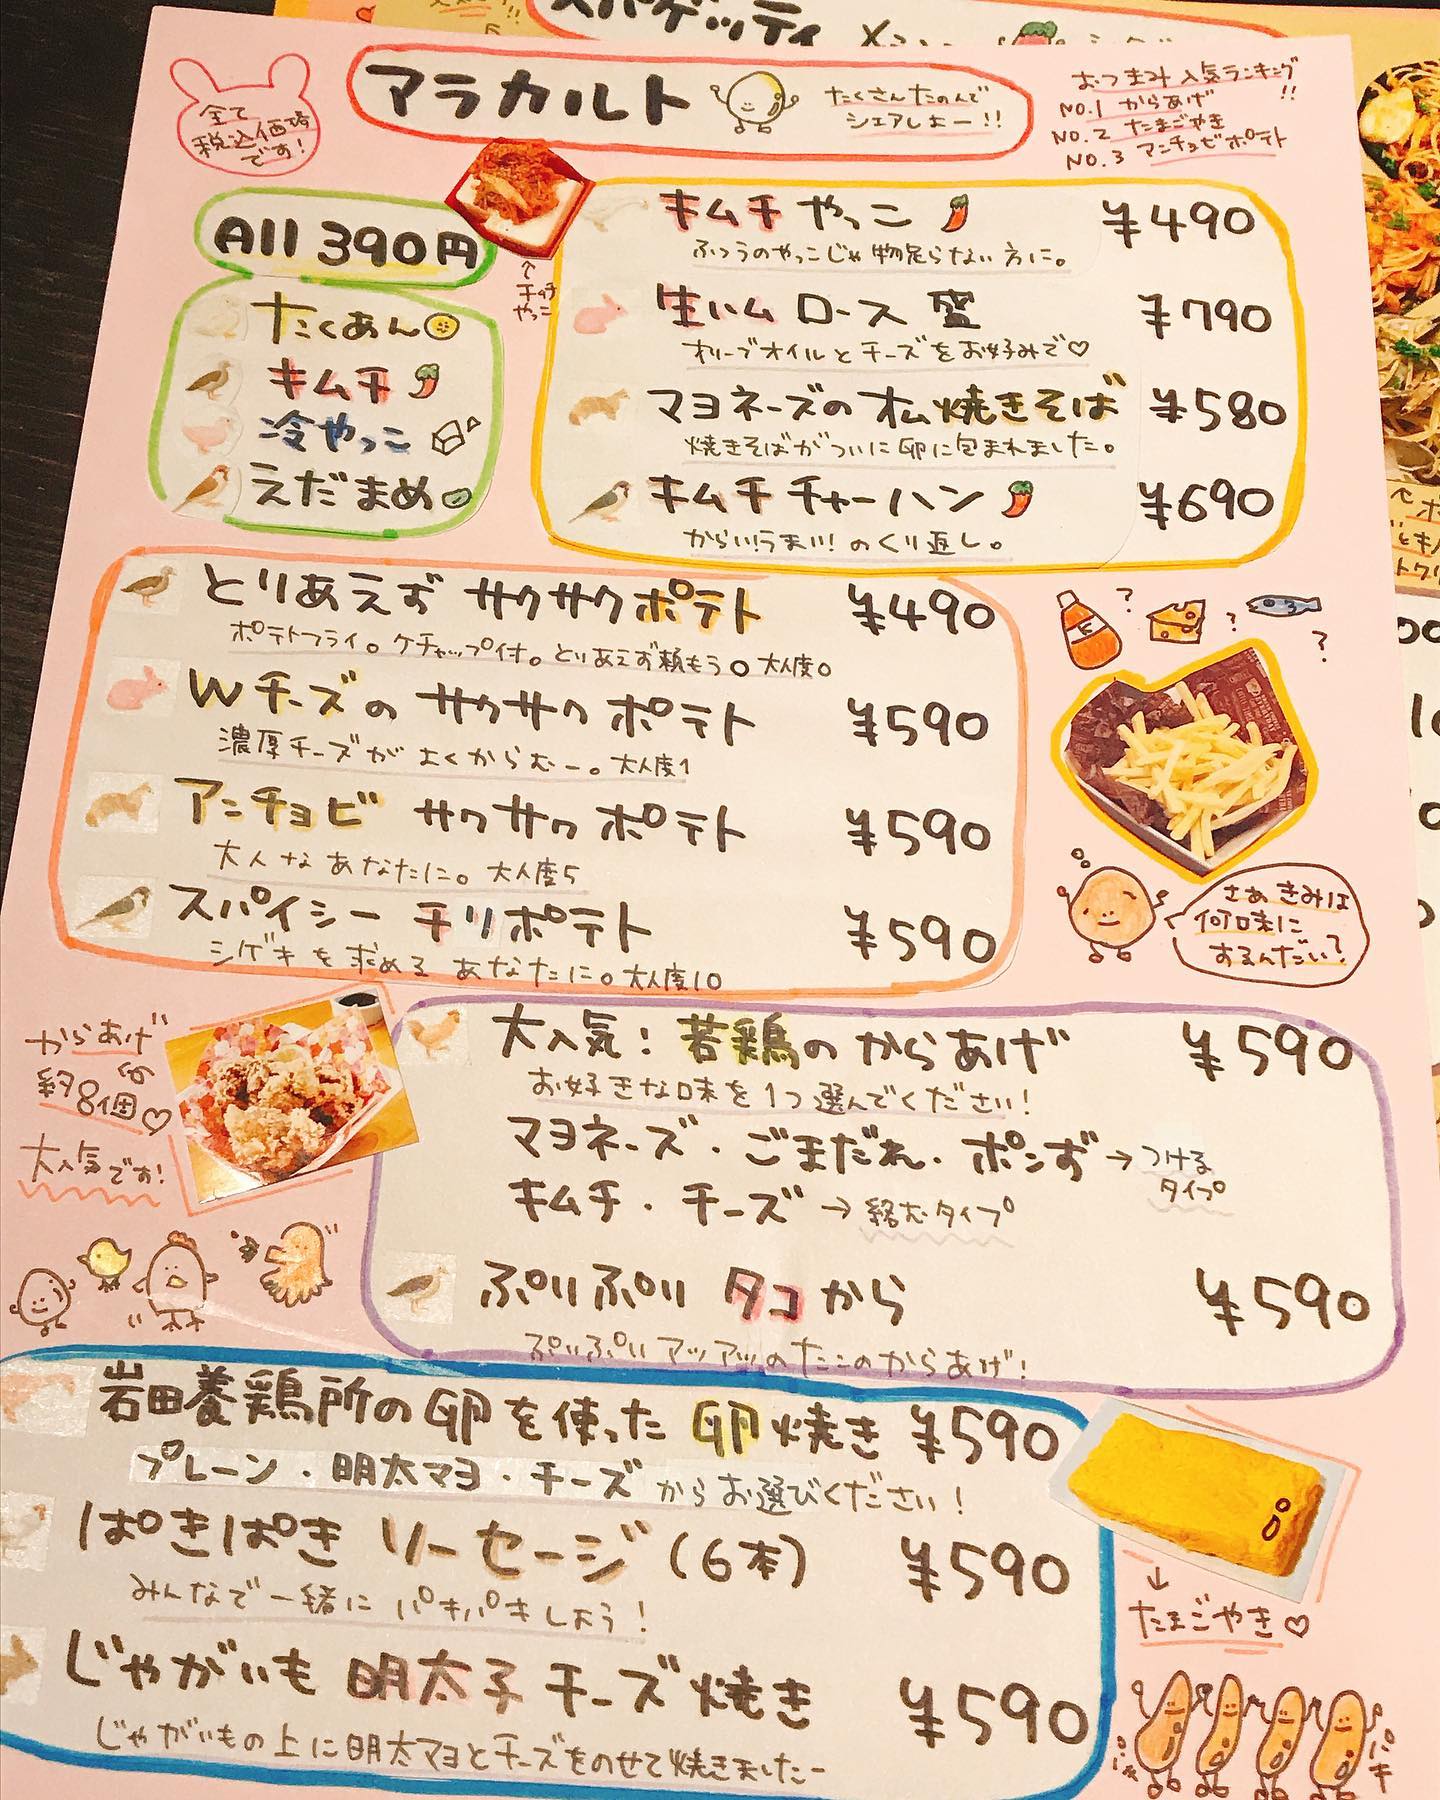 スパゲッティ
全て
税込価格
です!
アラカルト
たくさんたのんで
シェアしよー!!
おつまみ人気ランキング!!
NO.1 からあげ
NO.2 たまごやき
NO.3 アンチョビポテト
All 390円
たくあん
キムチ
冷やっこ
えだまめ
↑
キムチ
やっこ
キムチやっこ ¥490
ふつうのやっこじゃ物足らない方に。
生ハムロース盛 ¥790
オリーブオイルとチーズをお好みで♡
マヨネーズのオム焼きそば ¥580
焼きそばがついに卵に包まれました。
キムチチャーハン ¥690
からい!うまい!のくり返し。
とりあえずサクサクポテト ¥490
ポテトフライ。ケチャップ付。とりあえず頼もう。大人度0
Wチーズのサクサクポテト ¥590
濃厚チーズがよくからむー。大人度1
アンチョビサクサクポテト ¥590
大人なあなたに。大人度5
スパイシーチリポテト ¥590
シゲキを求めるあなたに。大人度10
? ? ?
さあきみは
何味に
するんだい?
からあげ
約8個♡
大人気です!
大人気!若鶏のからあげ ¥590
お好きな味を1つ選んでください!
マヨネーズ・ごまだれ・ポンず→つける
タイプ
キムチ・チーズ→絡むタイプ
ぷりぷりタコから ¥590
ぷりぷりアツアツのたこのからあげ!
岩田養鶏所の卵を使った卵焼き ¥590
プレーン・明太マヨ・チーズからお選びください!
ぱきぱきソーセージ(6本) ¥590
みんなで一緒にパキパキしよう!
じゃがいも明太子チーズ焼き ¥590
じゃがいもの上に明太マヨとチーズをのせて焼きましたー
↓
たまごやき♡